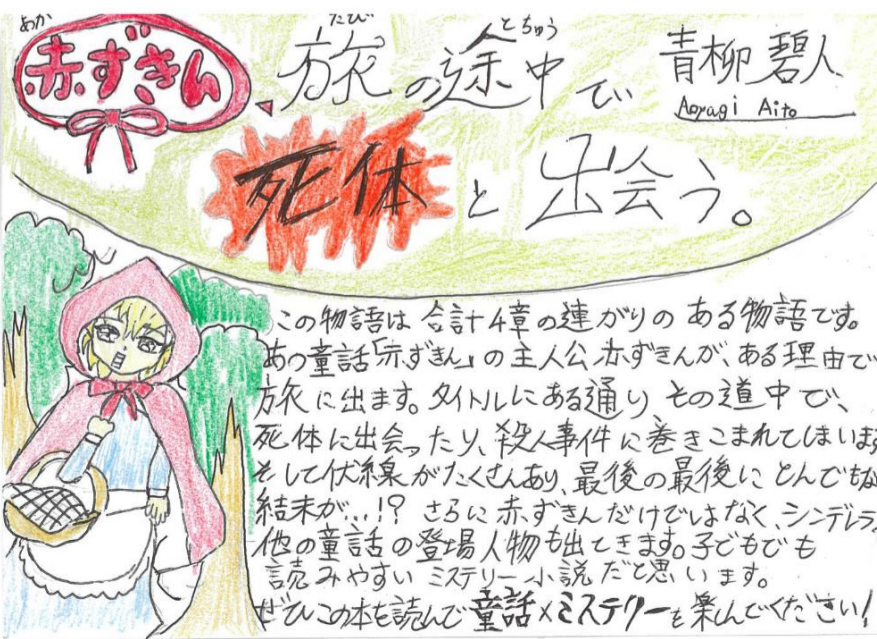 あか
赤ずきん、旅の途中で
たび とちゅう
青柳 碧人
Aoyagi Aito
死体と出会う。
この物語は合計4章の連がりのある物語です。
あの童話「赤ずきん」の主人公赤ずきんが、ある理由で
旅に出ます。タイトルにある通り、その道中で、
死体に出会ったり、殺人事件に巻きこまれてしまいます
そして伏線がたくさんあり、最後の最後にとんでもな
結末が…!? さらに赤ずきんだけではなくシンデレラ、
他の童話の登場人物も出てきます。子どもでも
読みやすいミステリー小説だと思います。
ぜひこの本を読んで童話×ミステリーを楽しんでください!